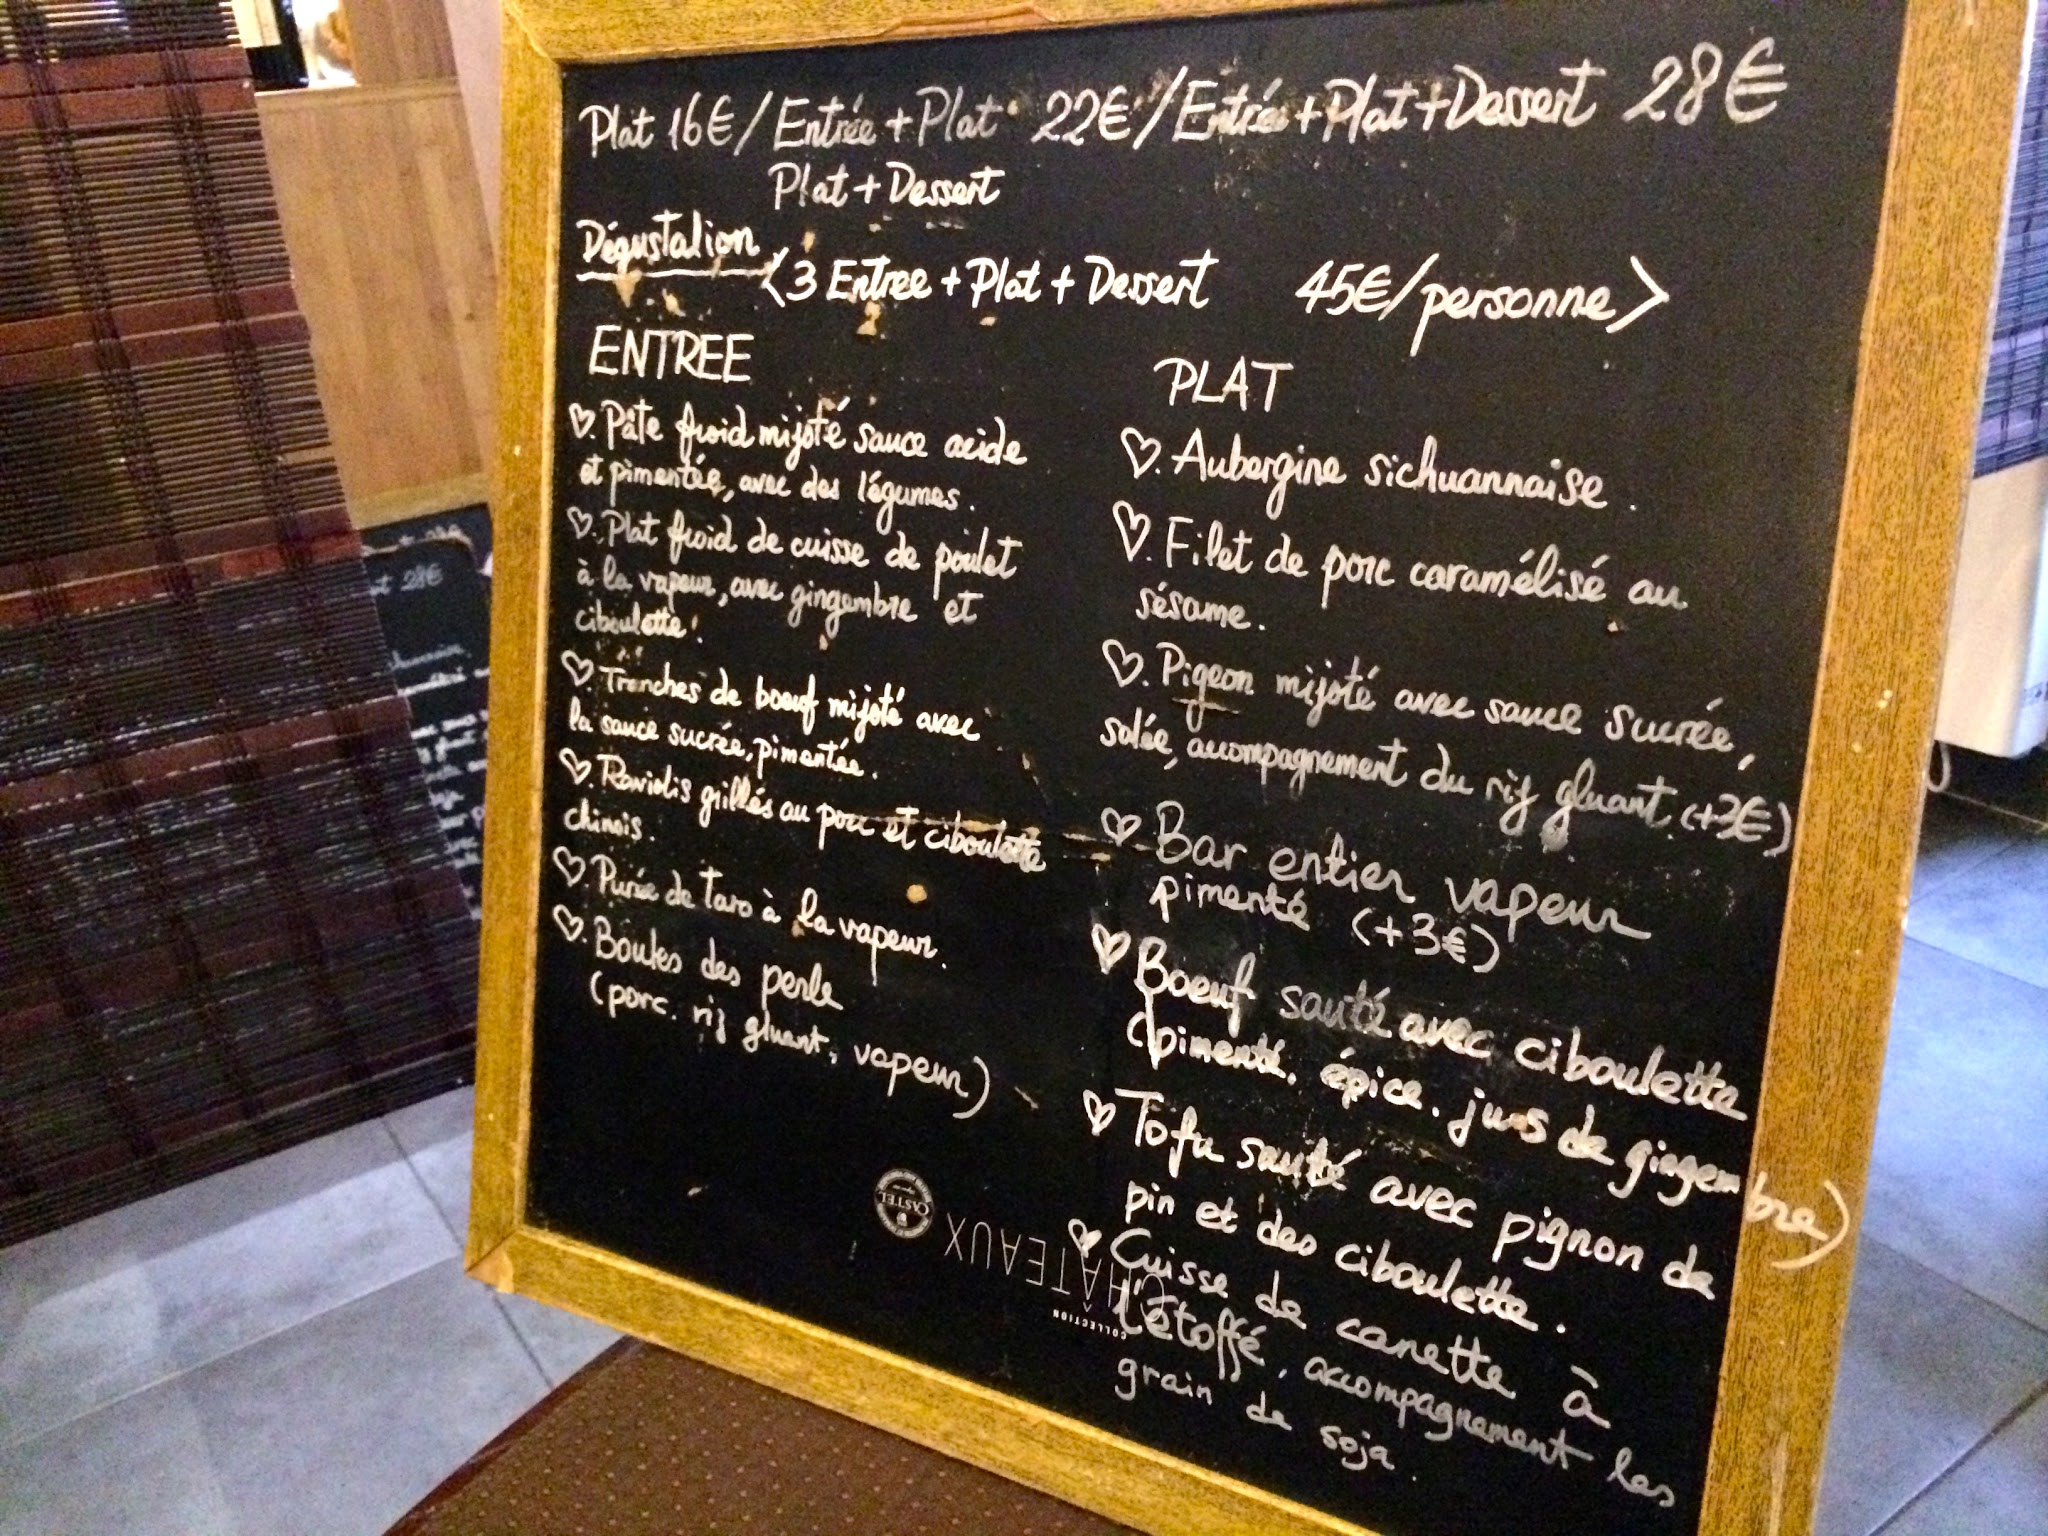 Plat 16€/Entrée+Plat 22€/Entrée+Plat+Dessert 28€
Plat+Dessert
Dégustation
<3 Entree+Plat+Dessert 45€/personne>
ENTREE
♡. Pâte froid mijoté sauce acide
et pimentée, avec des légumes.
♡. Plat froid de cuisse de poulet
à la vapeur, avec gingembre et
ciboulette.
♡. Tranches de boeuf mijoté avec
la sauce sucrée, pimentée.
♡. Raviolis grillés au porc et ciboulette
chinois.
♡. Purée de taro à la vapeur.
♡. Boules des perle
(porc. riz gluant, vapeur)
PLAT
♡. Aubergine sichuannaise.
♡. Filet de porc caramélisé au
sésame.
♡. Pigeon mijoté avec sauce sucrée,
salée, accompagnement du riz gluant (+3€)
♡ Bar entier vapeur
pimenté (+3€)
♡ Boeuf sauté avec ciboulette
(pimenté. épice. jus de gingembre)
♡ Tofu sauté avec pignon de
pin et des ciboulette.
♡ Cuisse de canette à
l'étoffé, accompagnement les
grain de soja.
CASTEL
CHÂTEAUX
COLLECTION
28€